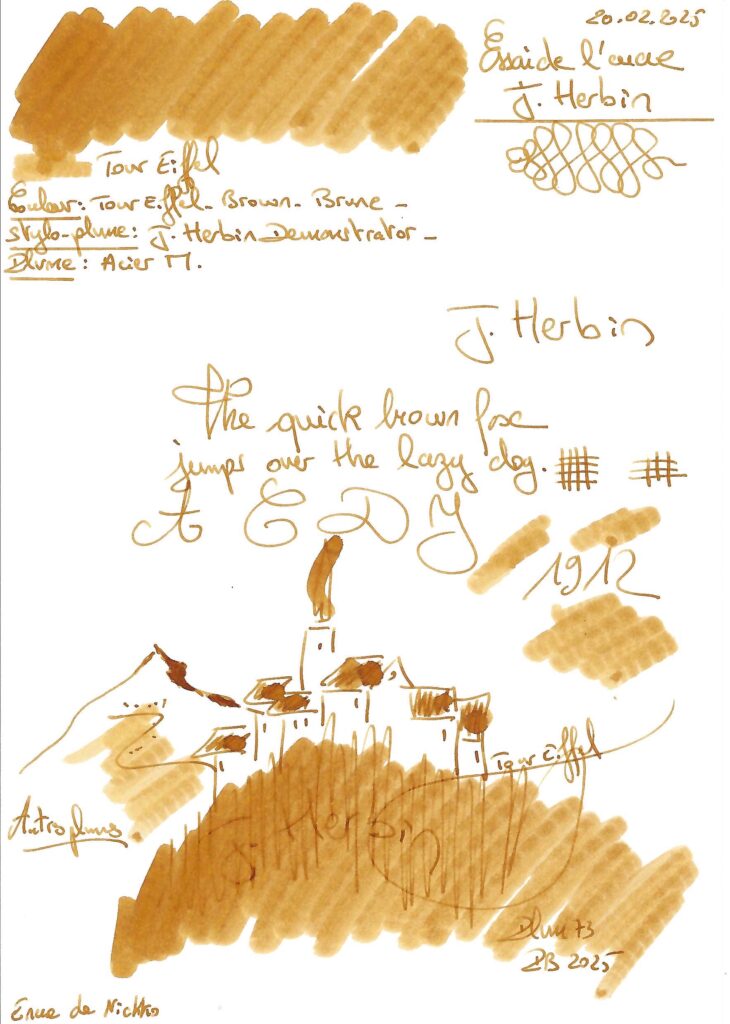 20.02.2025
Essai de l'encre
J. Herbin
Tour Eiffel
Couleur: Tour Eiffel - Brown - Brune -
Stylo-plume: J. Herbin Demonstrator -
Plume: Acier M.
J. Herbin
The quick brown fox
jumps over the lazy dog.
A E D J
1912
Tour Eiffel
J. Herbin
Plum 73
PB 2025
de Nickko